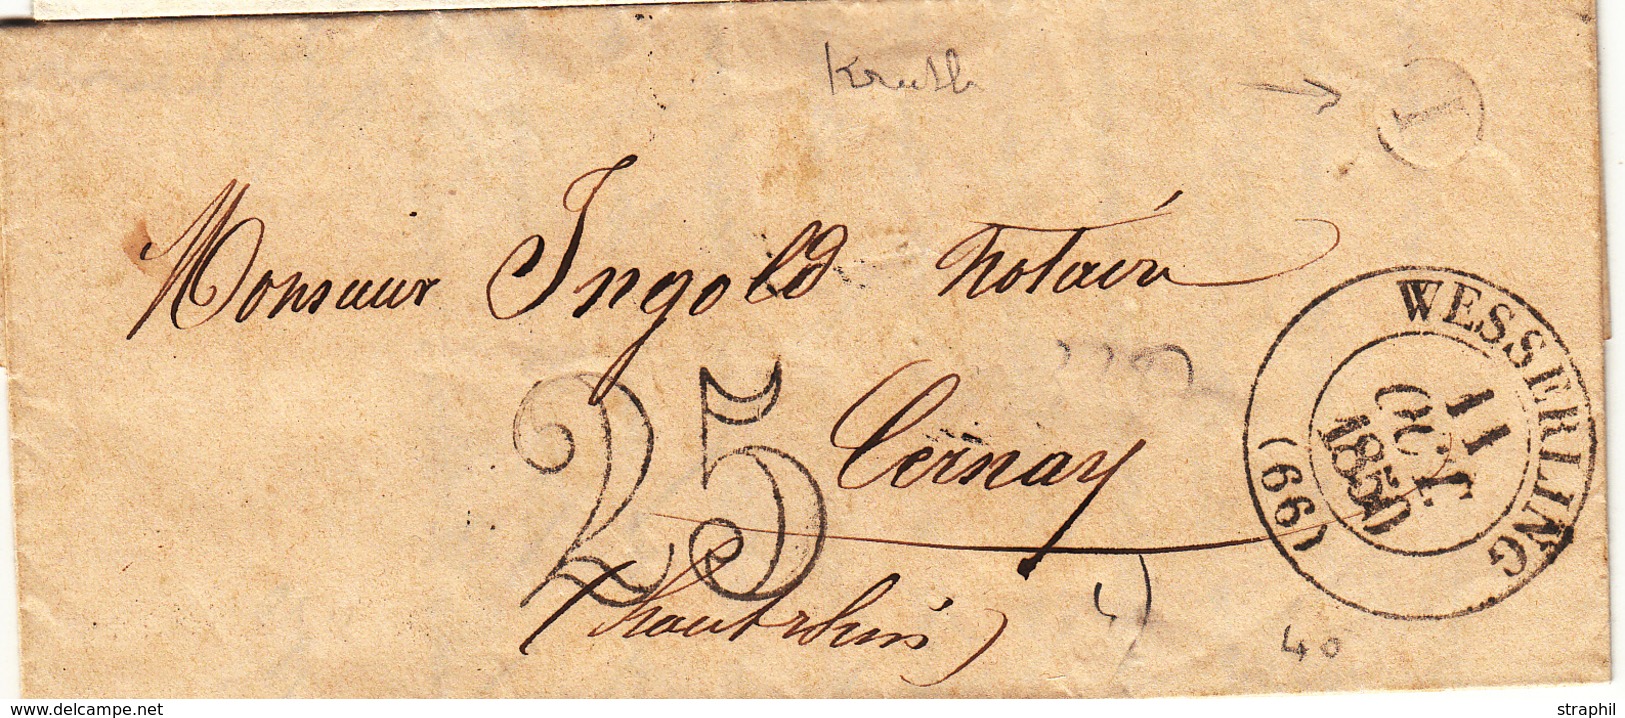 Kruth
Monsieur Ingold notaire
25
Cernay
(haut rhin)
WESSERLING
11
OCT
1850
(66)
40
www.delcampe.net
straphil